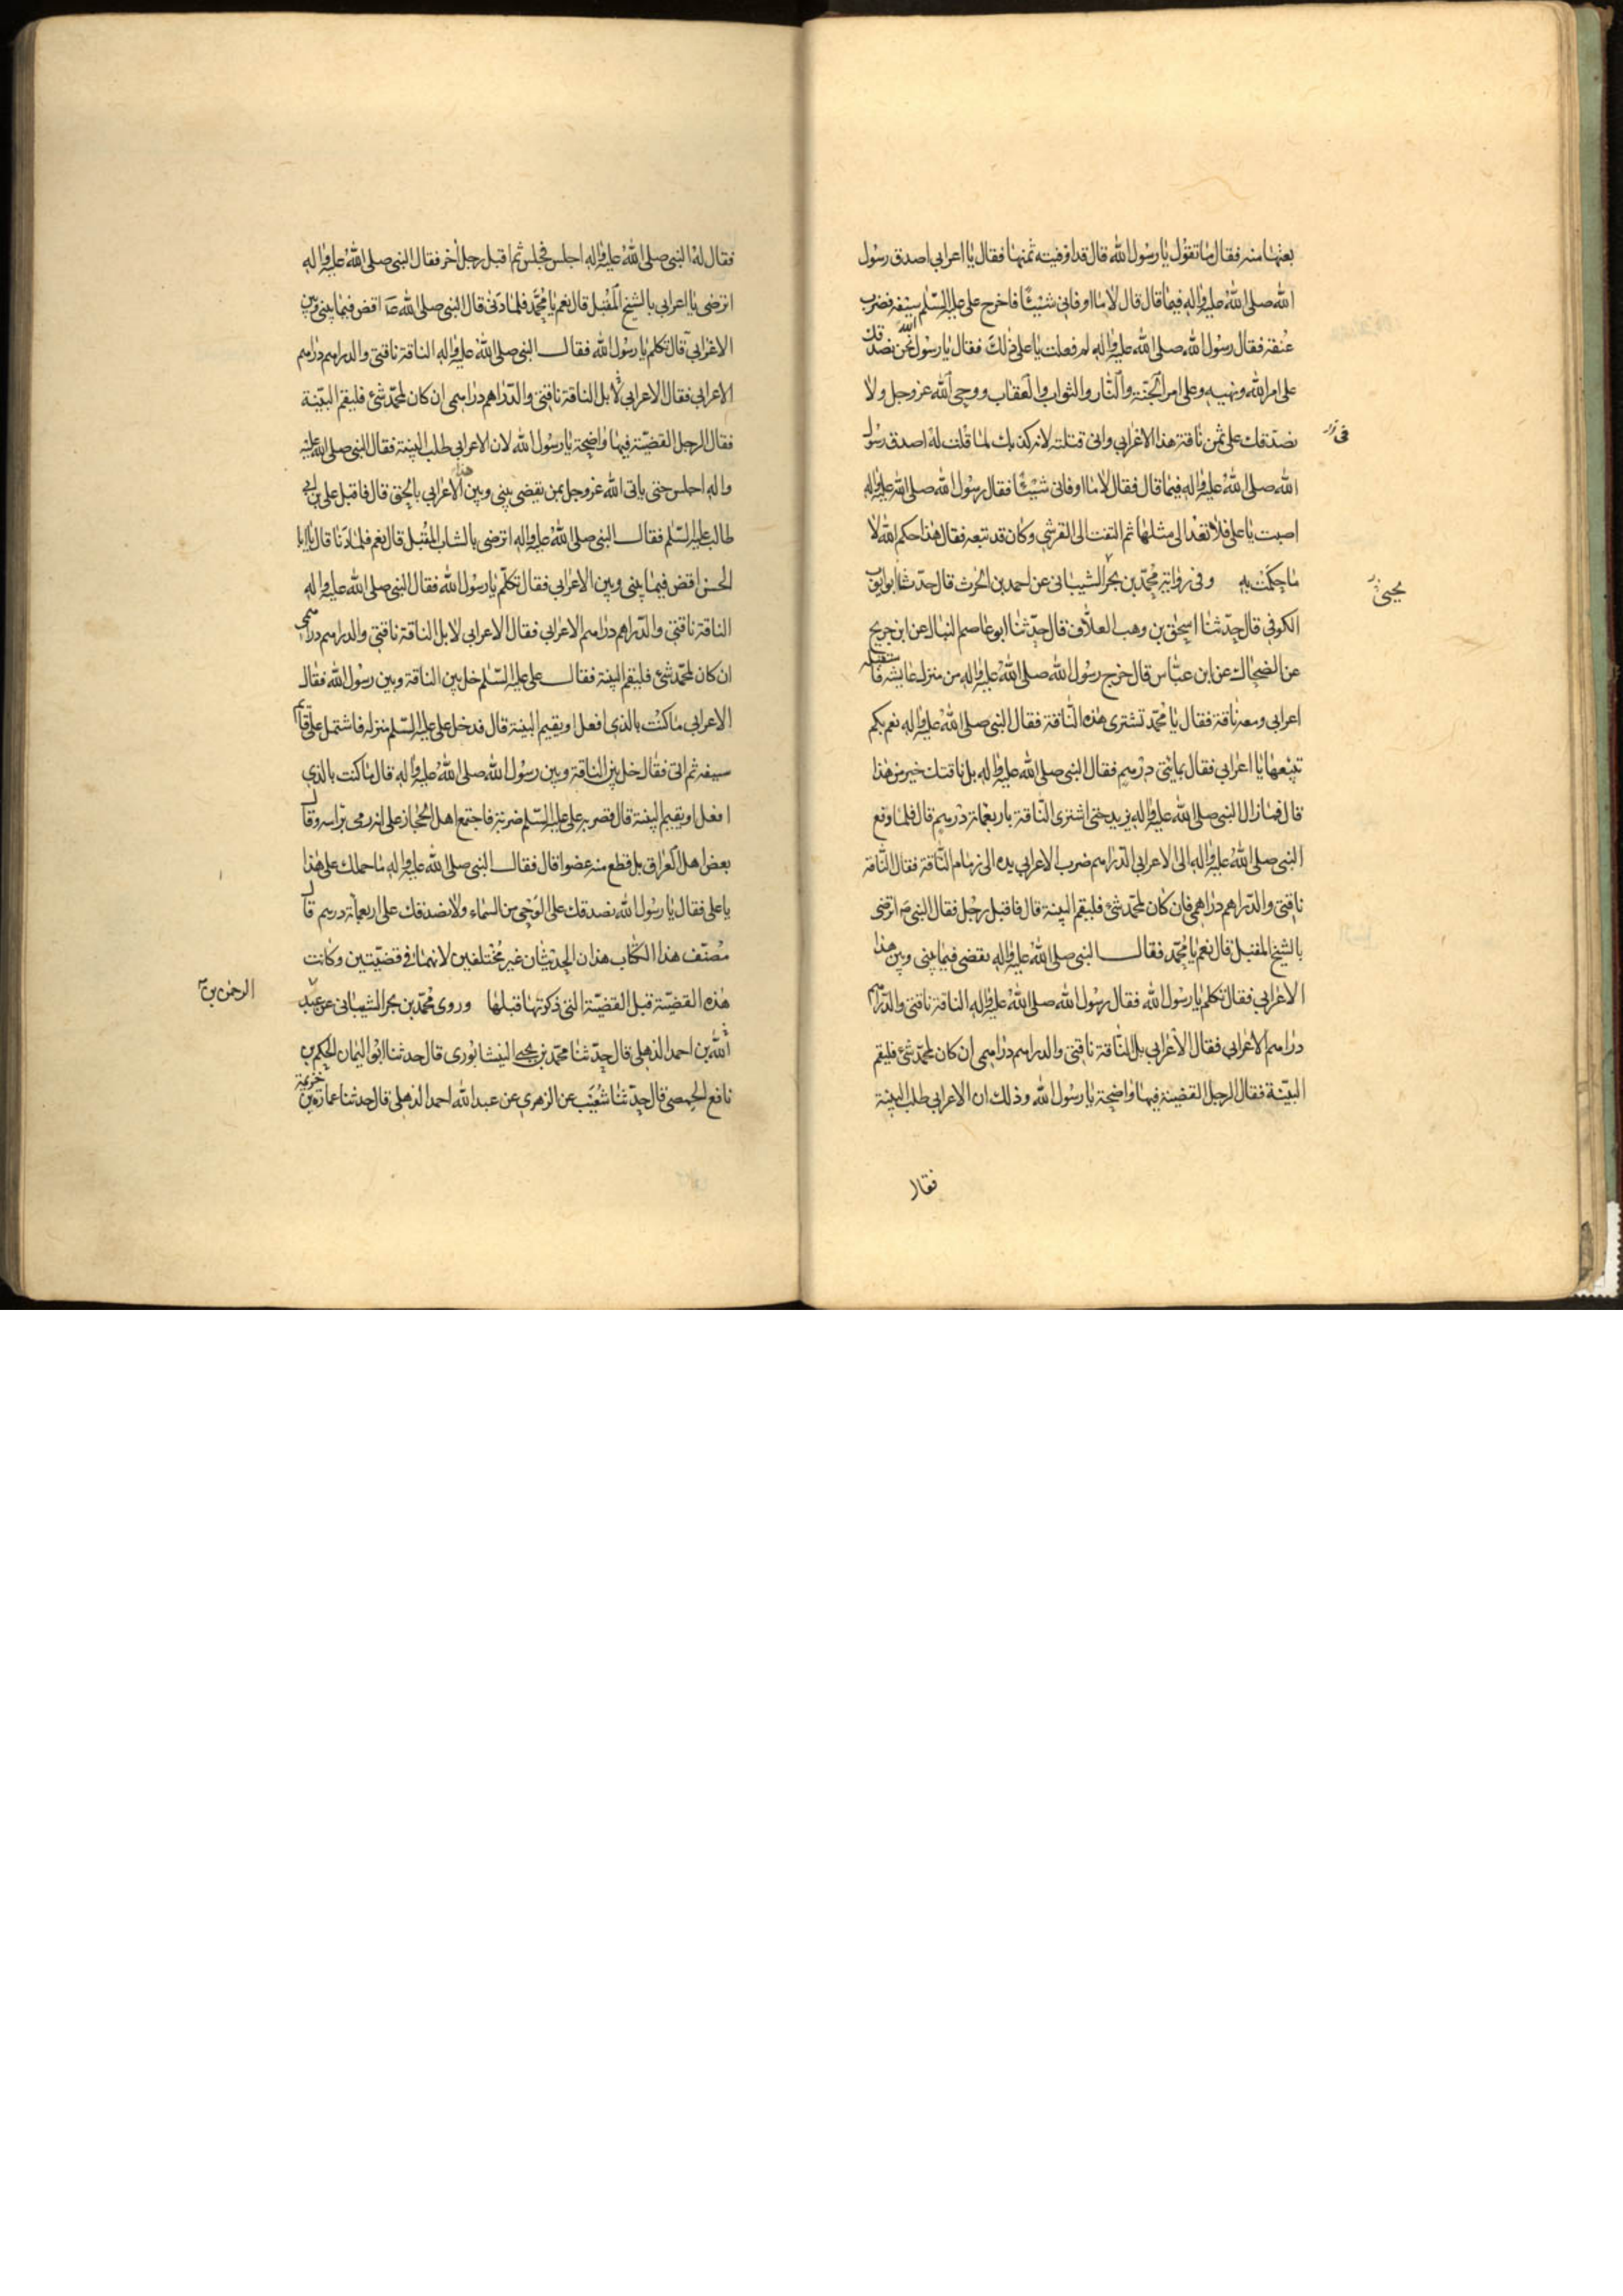 بعتها منه فقال ما تقول يا رسول الله قال قد اوفيته ثمنها فقال يا اعرابي اصدق رسول
الله صلى الله عليه واله فيما قال قال لا ما اوفاني شيئا فاخرج علي عليه السلم سيفه فضرب
عنقه فقال رسول الله صلى الله عليه واله لم فعلت يا علي ذلك فقال يا رسول الله نحن نصدقك
على امر الله ونهيه وعلى امر الجنة والنار والثواب والعقاب ووحي الله عز وجل ولا
نصدقك على ثمن ناقة هذا الاعرابي واني قتلته لانه كذبك لما قلت له اصدق رسول
الله صلى الله عليه واله فيما قال فقال لا ما اوفاني شيئا فقال رسول الله صلى الله عليه واله
اصبت يا علي فلا تعد الى مثلها ثم التفت الى القرشي وكان قد تبعه فقال هذا حكم الله لا
ما حكمت به وفي رواية محمد بن بحر الشيباني عن احمد بن الحرث قال حدثنا ابو ايوب
الكوفي قال حدثنا اسحق بن وهب العلاف قال حدثنا ابو عاصم النبال عن ابن جريح
عن الضحاك عن ابن عباس قال خرج رسول الله صلى الله عليه واله من منزل عايشه فاستقبله
اعرابي ومعه ناقة فقال يا محمد تشتري هذه الناقة فقال النبي صلى الله عليه واله نعم بكم
تبيعها يا اعرابي فقال بمايتي درهم فقال النبي صلى الله عليه واله بل ناقتك خير من هذا
قال فما زال النبي صلى الله عليه واله يزيد حتى اشترى الناقة باربعمائة درهم قال فلما دفع
النبي صلى الله عليه واله الى الاعرابي الدراهم ضرب الاعرابي يده الى زمام الناقة فقال الناقة
ناقتي والدراهم دراهمي فان كان لمحمد شئ فليقم البينة قال فاقبل رجل فقال النبي ص اترضى
بالشيخ المقبل قال نعم يا محمد فقال النبي صلى الله عليه واله تقضي فيما بيني وبين هذا
الاعرابي فقال تكلم يا رسول الله فقال رسول الله صلى الله عليه واله الناقة ناقتي والدراهم
دراهم الاعرابي فقال الاعرابي بل الناقة ناقتي والدراهم دراهمي ان كان لمحمد شئ فليقم
البينة فقال الرجل القضية فيها واضحة يا رسول الله وذلك ان الاعرابي طلب البينة
فقال
في
يحيى
فقال له النبي صلى الله عليه واله اجلس فجلس ثم اقبل رجل اخر فقال النبي صلى الله عليه واله
اترضى يا اعرابي بالشيخ المقبل قال نعم يا محمد فلما دنى قال النبي صلى الله ص اقض فيما بيني وبين
الاعرابي قال تكلم يا رسول الله فقال النبي صلى الله عليه واله الناقة ناقتي والدراهم دراهم
الاعرابي فقال الاعرابي لا بل الناقة ناقتي والدراهم دراهمي ان كان لمحمد شئ فليقم البينة
فقال الرجل القضية فيها واضحة يا رسول الله لان الاعرابي طلب البينة فقال النبي صلى الله عليه
واله اجلس حتى ياتي الله عز وجل بمن يقضي بيني وبين هذا الاعرابي بالحق قال فاقبل علي بن ابي
طالب عليه السلم فقال النبي صلى الله عليه واله اترضى بالشاب المقبل قال نعم فلما دنا قال يا ابا
الحسن اقض فيما بيني وبين الاعرابي فقال تكلم يا رسول الله فقال النبي صلى الله عليه واله
الناقة ناقتي والدراهم دراهم الاعرابي فقال الاعرابي لا بل الناقة ناقتي والدراهم دراهمي
ان كان لمحمد شئ فليقم البينة فقال علي عليه السلم خل بين الناقة وبين رسول الله فقال
الاعرابي ما كنت بالذي افعل او يقيم البينة قال فدخل علي عليه السلم منزله فاشتمل على قائم
سيفه ثم اتى فقال خل بين الناقة وبين رسول الله صلى الله عليه واله قال ما كنت بالذي
افعل او يقيم البينة قال فضربه علي عليه السلم ضربة فاجتمع اهل الحجاز على انه رمى براسه وقال
بعض اهل العراق بل قطع منه عضوا قال فقال النبي صلى الله عليه واله ما حملك على هذا
يا علي فقال يا رسول الله نصدقك على الوحي من السماء ولا نصدقك على اربعمائة درهم قال
مصنف هذا الكتاب هذان الحديثان غير مختلفين لانهما في قضيتين وكانت
هذه القضية قبل القضية التي ذكرتها قبلها وروى محمد بن بحر الشيباني عن عبد
الله بن احمد الذهلي قال حدثنا محمد بن يحيى النيشابوري قال حدثنا ابو اليمان الحكم بن
نافع الحمصي قال حدثنا شعيب عن الزهري عن عبد الله احمد الذهلي قال حدثنا عمارة بن خزيمة
الرحمن بن